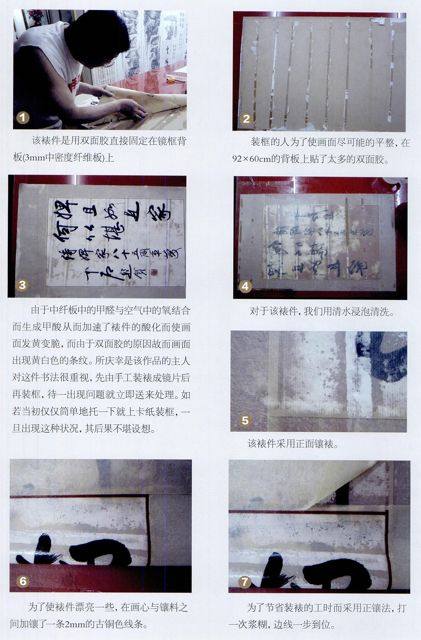 1
该裱件是用双面胶直接固定在镜框背
板(3mm中密度纤维板)上
2
装框的人为了使画面尽可能的平整,在
92×60cm的背板上贴了太多的双面胶。
3
由于中纤板中的甲醛与空气中的氧结合
而生成甲酸从而加速了裱件的酸化而使画
面发黄变脆,而由于双面胶的原因故而画面
出现黄白色的条纹。所庆幸是该作品的主人
对这件书法很重视,先由手工装裱成镜片后
再装框,待一出现问题就立即送来处理。如
若当初仅仅简单地托一下就上卡纸装框,一
旦出现这种状况,其后果不堪设想。
4
对于该裱件,我们用清水浸泡清洗。
5
该裱件采用正面镶裱。
6
为了使裱件漂亮一些,在画心与镶料之
间加镶了一条2mm的古铜色线条。
7
为了节省装裱的工时而采用正镶法,打
一次浆糊,边线一步到位。